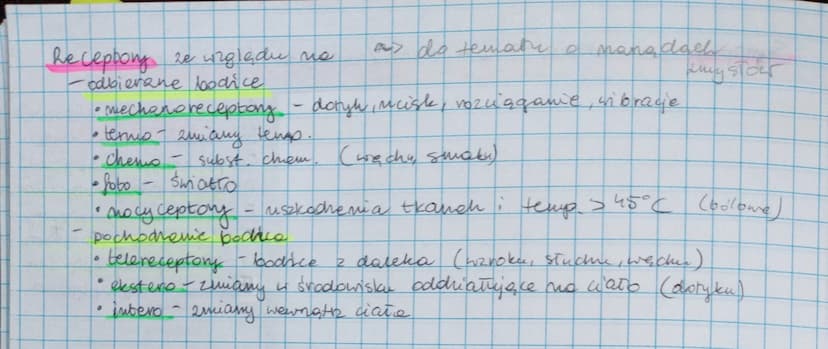 Receptory ze względu na ~> do tematu o narządach
zmysłów
- odbierane bodźce
• mechanoreceptory - dotyk, ucisk, rozciąganie, wibracje
• termo - zmiany temp.
• chemo - subst. chem. (węchu, smaku)
• foto - światło
• nocyceptory - uszkodzenia tkanek i temp. > 45°C (bólowe)
- pochodzenie bodźca
• telereceptory - bodźce z daleka (wzroku, słuchu, węchu)
• ekstero - zmiany w środowisku oddziałujące na ciało (dotyku)
• intero - zmiany wewnątrz ciała